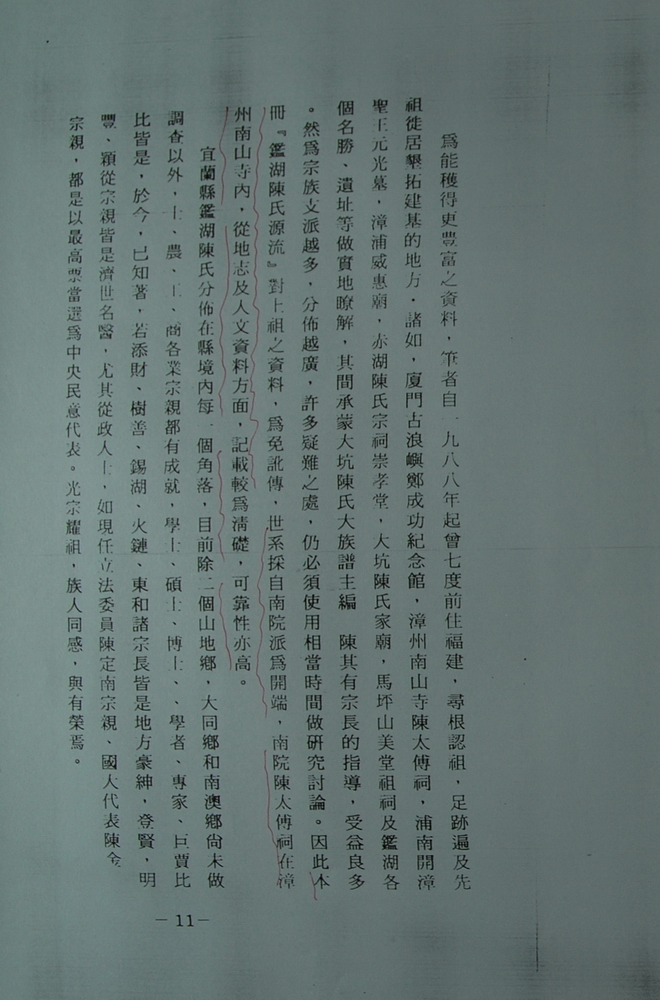 為能獲得更豐富之資料，筆者自一九八八年起曾七度前往福建，尋根認祖，足跡遍及先
祖徙居墾拓建基的地方．諸如，廈門古浪嶼鄭成功紀念館，漳州南山寺陳太傅祠，浦南開漳
聖王元光墓，漳浦威惠廟，赤湖陳氏宗祠崇孝堂，大坑陳氏家廟，馬坪山美堂祖祠及鑑湖各
個名勝、遺址等做實地瞭解，其間承蒙大坑陳氏大族譜主編　陳其有宗長的指導，受益良多
。然為宗族支派越多，分佈越廣，許多疑難之處，仍必須使用相當時間做研究討論。因此本
冊『鑑湖陳氏源流』對上祖之資料，為免訛傳，世系採自南院派為開端，南院陳太傅祠在漳
州南山寺內，從地志及人文資料方面，記載較為清礎，可靠性亦高。
宜蘭縣鑑湖陳氏分佈在縣境內每一個角落，目前除二個山地鄉，大同鄉和南澳鄉尚未做
調查以外，士、農、工、商各業宗親都有成就，學士、碩士、博士、、學者、專家、巨賈比
比皆是，於今，已知著，若添財、樹善、錫湖、火鏈、東和諸宗長皆是地方豪紳，登賢，明
豐、穎從宗親皆是濟世名醫，尤其從政人士，如現任立法委員陳定南宗親、國大代表陳金
宗親，都是以最高票當選為中央民意代表。光宗耀祖，族人同感，與有榮焉。
－11－